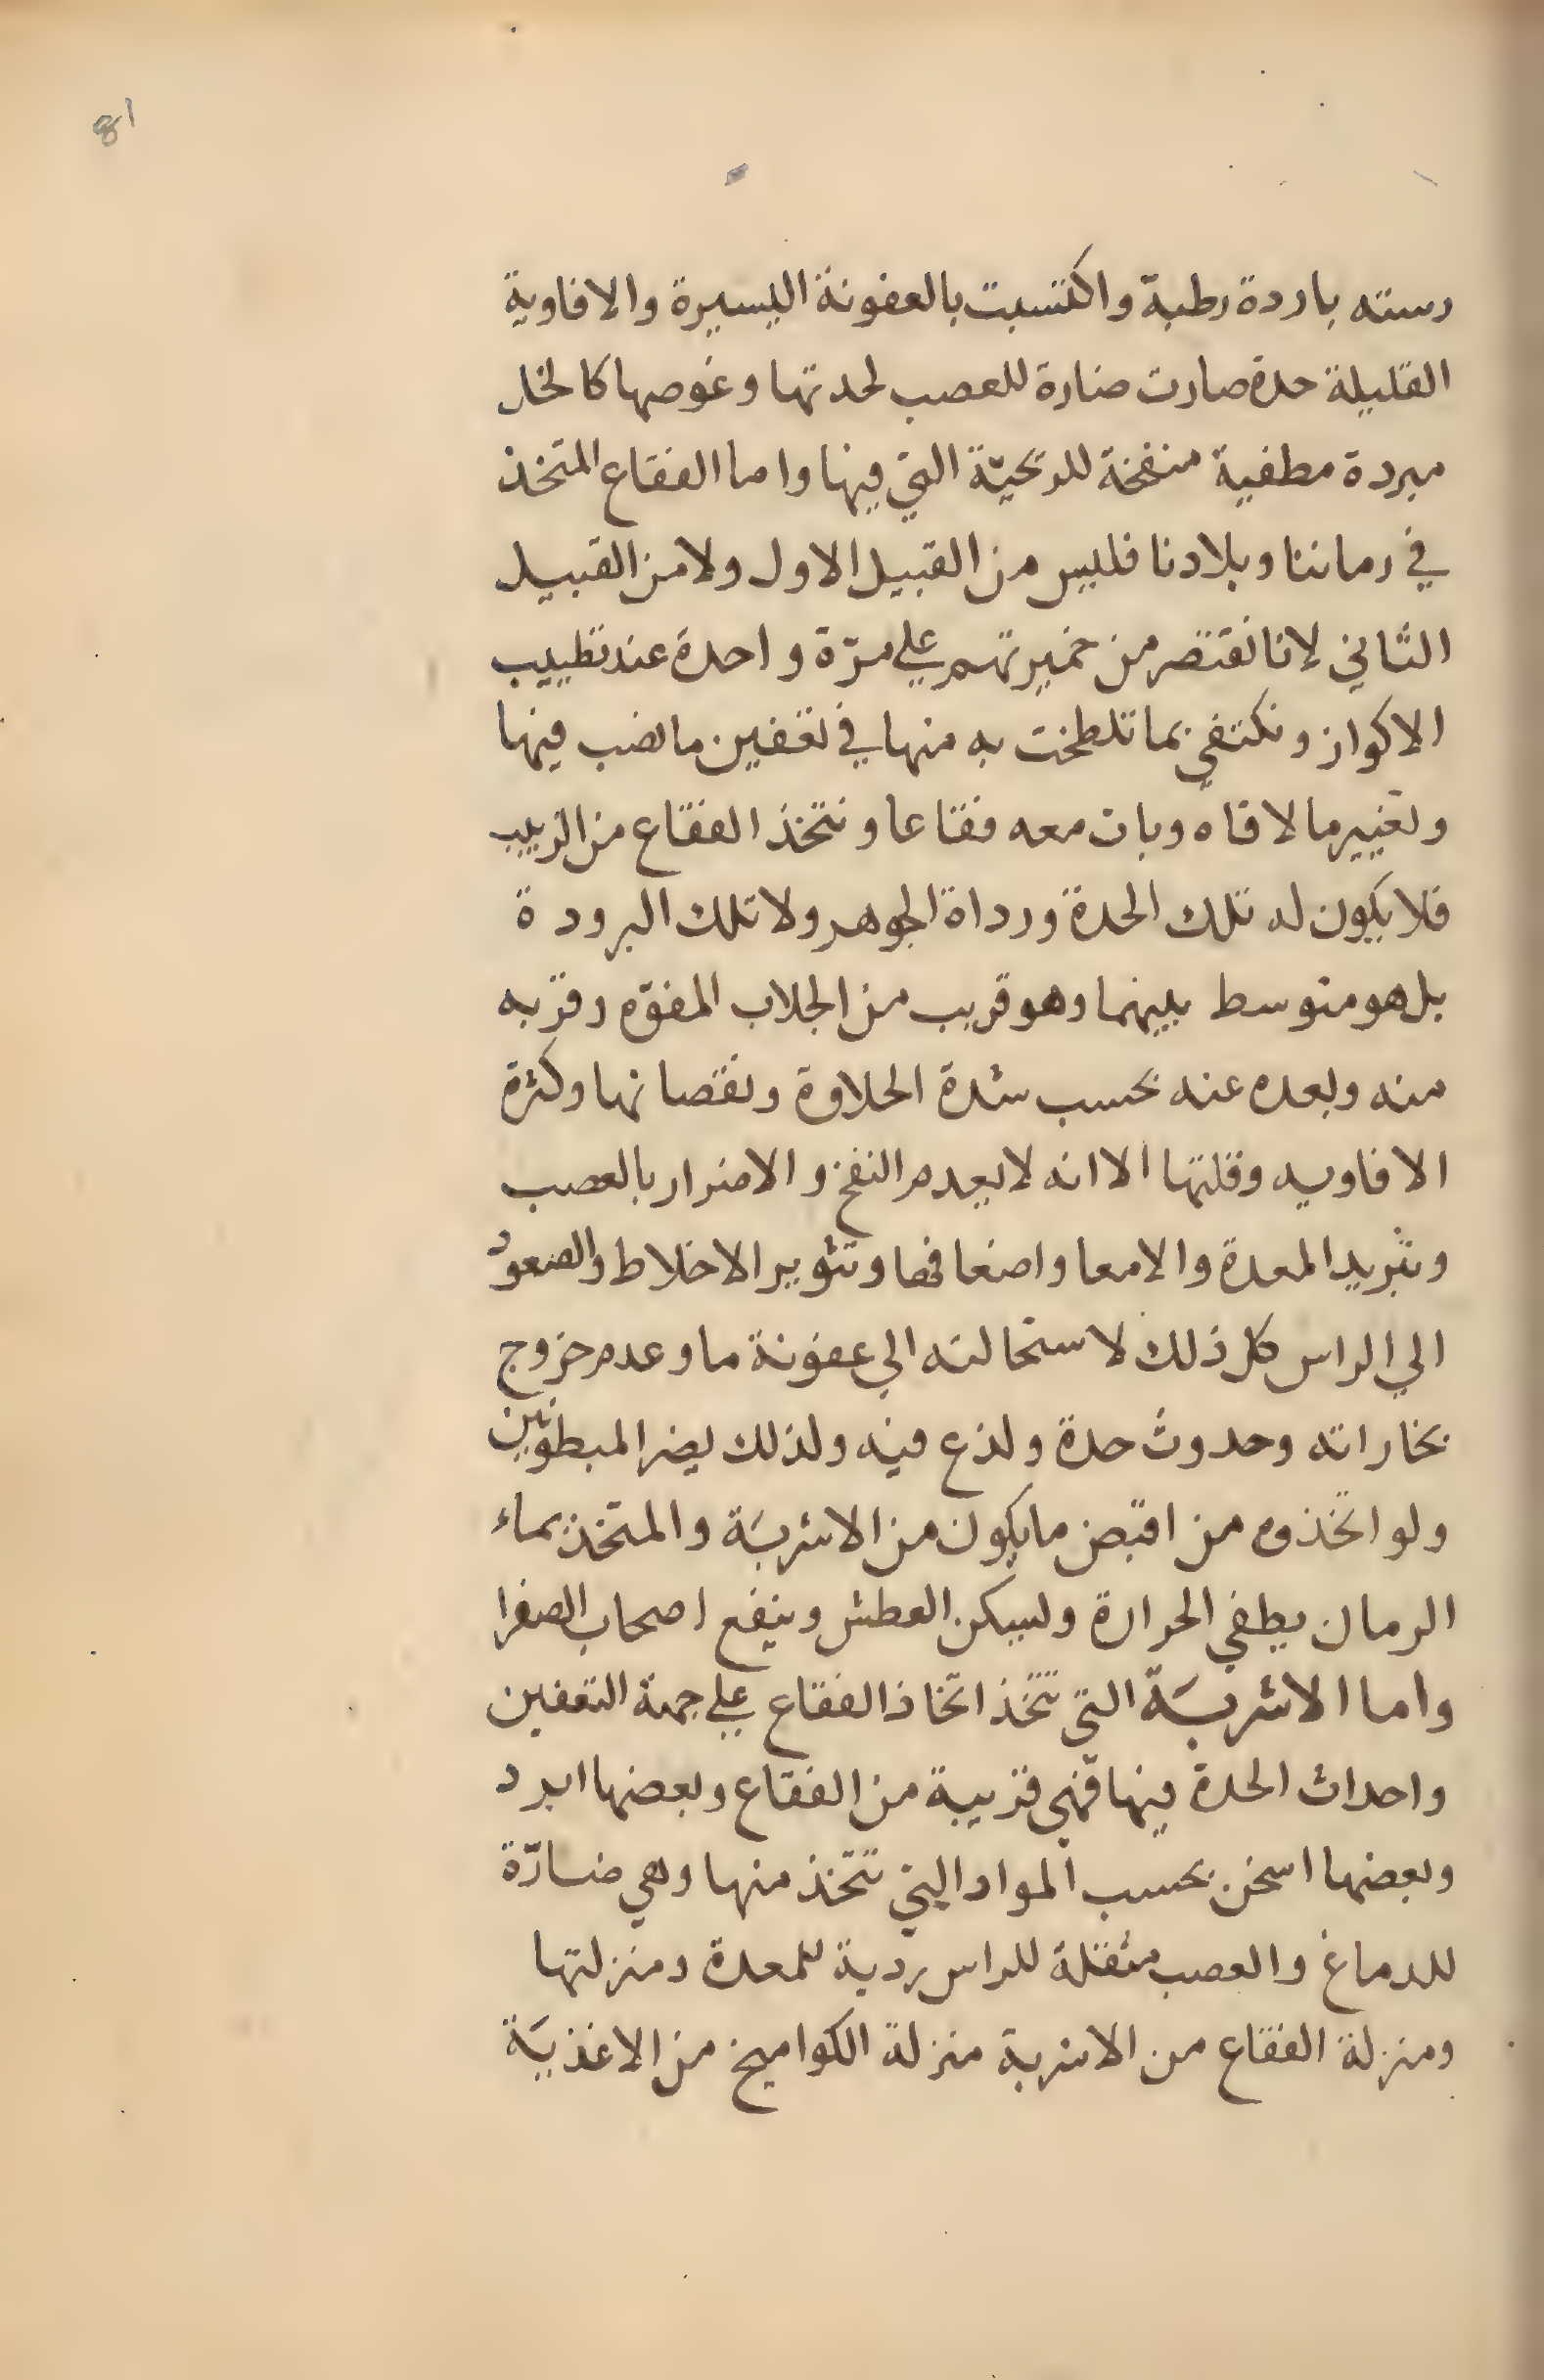 81
رسته باردة رطبة واكتسبت بالعفونة اليسيرة والافاوية
القليلة حدة صارت ضارة للعصب لحدتها وغوصها كالخل
مبردة مطفية منفخة للريحيّة التي فيها واما الفقاع المتخذ
في زماننا وبلادنا فليس من القبيل الاول ولا من القبيل
الثاني لانا نقتصر من خميرتهم علي مرّة واحدة عند تطييب
الاكواز ونكتفي بما تلطخت به منها في تعفين ما نصب فيها
وتغيير ما لاقاه وبات معه فقاعا ونتخذ الفقاع من الزبيب
فلا يكون له تلك الحدة ورداة الجوهر ولا تلك البرودة
بل هو متوسط بينهما وهو قريب من الجلاب المفوّه وقربه
منه وبعده عنه بحسب شدة الحلاوة ونقصانها وكثرة
الافاويه وقلتها الا انه لا يعدم النفخ والاضرار بالعصب
وتبريد المعدة والامعا واضعافها وتثوير الاخلاط والصعود
الي الراس كل ذلك لاستحالته الي عفونة ما وعدم خروج
بخاراته وحدوث حدة ولذع فيه ولذلك يضر المبطونين
ولو اتخذوه من اقبض ما يكون من الاشربَة والمتخذ بماء
الرمان يطفي الحرارة ويسكن العطش وينفع اصحاب الصفرا
واما الاشربَة التي تتخذ اتخاذ الفقاع علي جهة التعفين
واحداث الحدة فيها فهي قريبة من الفقاع وبعضها ابرد
وبعضها اسخن بحسب المواد التي تتخذ منها وهي ضارّة
للدماغ والعصب مثقلة للراس ردية للمعدة ومنزلتها
ومنزلة الفقاع من الاشربة منزلة الكواميخ من الاغذيَة